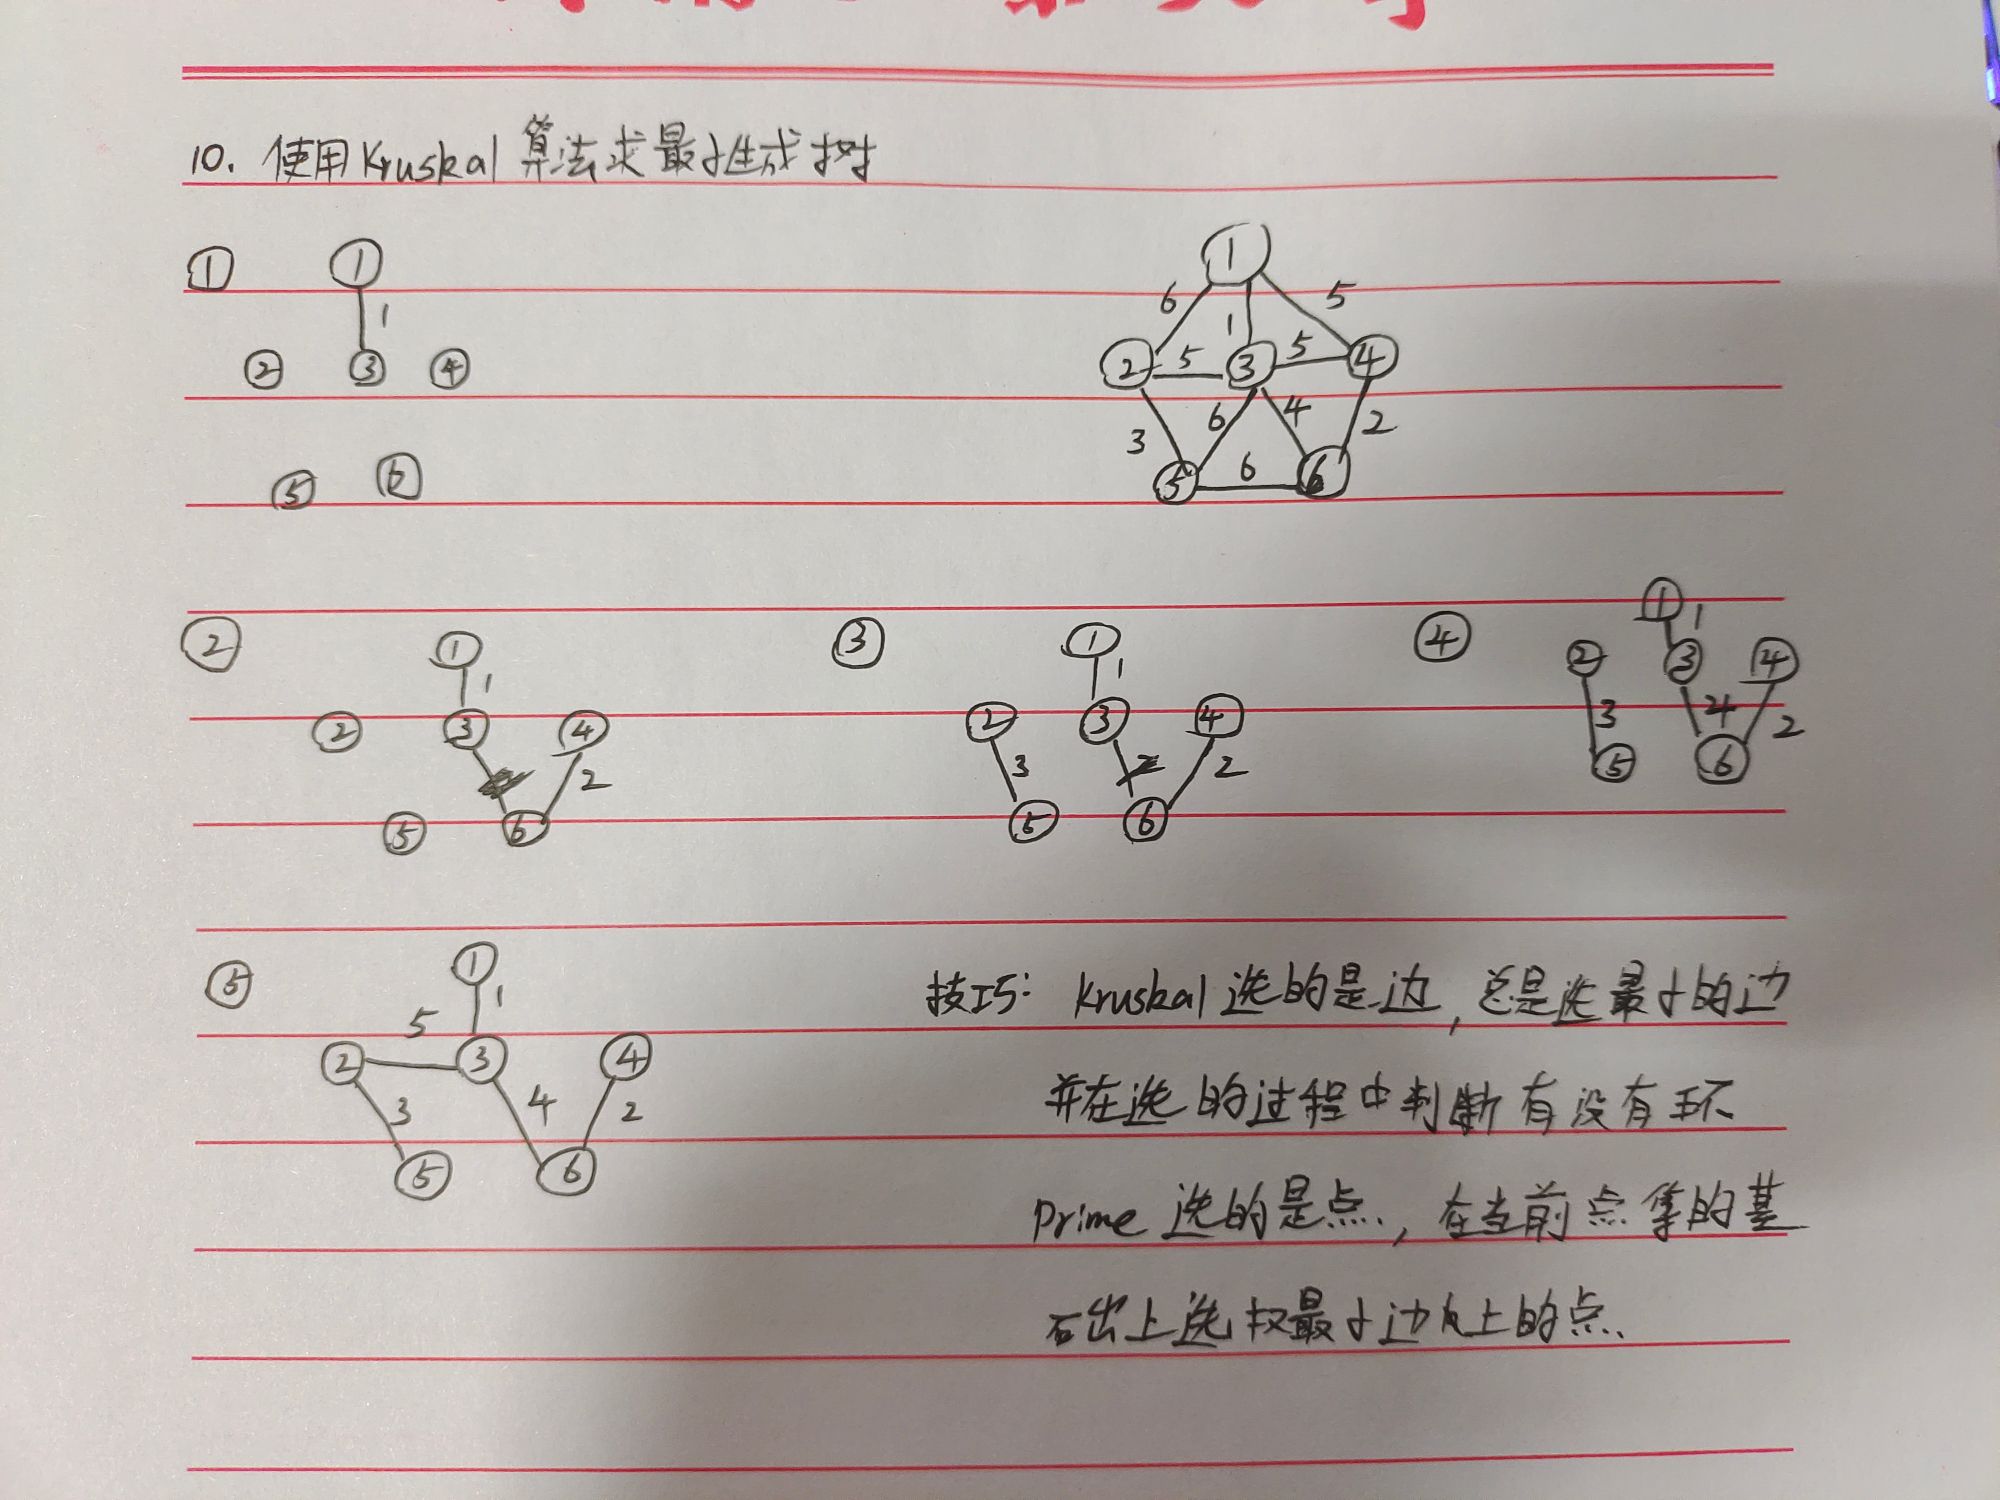 10. 使用Kruskal算法求最小生成树
① 1
1
2 3 4
5 6
1
6 1 5
2 5 3 5 4
3 6 4 2
5 6 6
② 1
1
2 3 4
2
5 6
③ 1
1
2 3 4
3 2
5 6
④ 1
1
2 3 4
3 4 2
5 6
⑤ 1
1
5
2 3 4
3 4 2
5 6
技巧: Kruskal 选的是边, 总是选最小的边
并在选的过程中判断有没有环
Prime 选的是点, 在当前点集的基
础上选权最小边上的点.